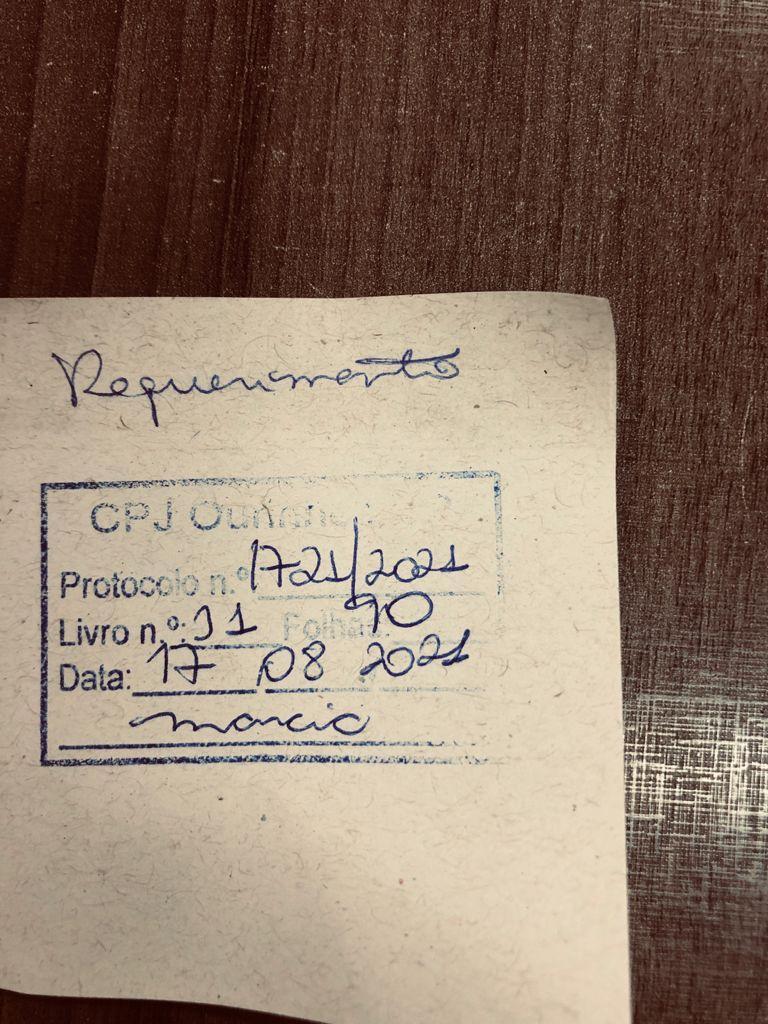 Requerimento
CPJ
Protocolo n.º 1721/2021
Livro n.º: 11 Folhas: 90
Data: 17 08 2021
marcio